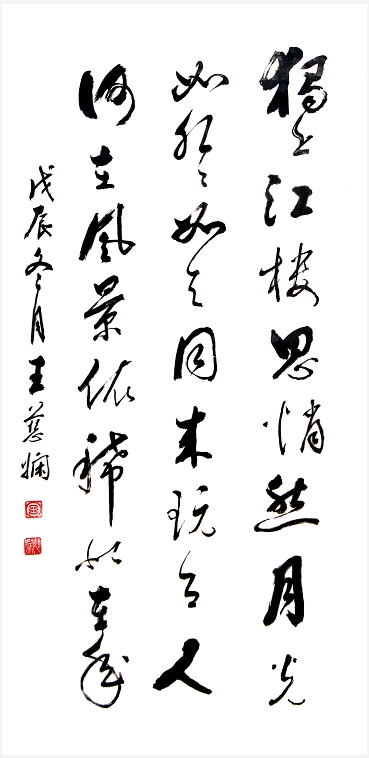 獨上江樓思悄然月光
如水々如天同来玩月人
何在風景依稀似去年
戊辰冬月王嫻